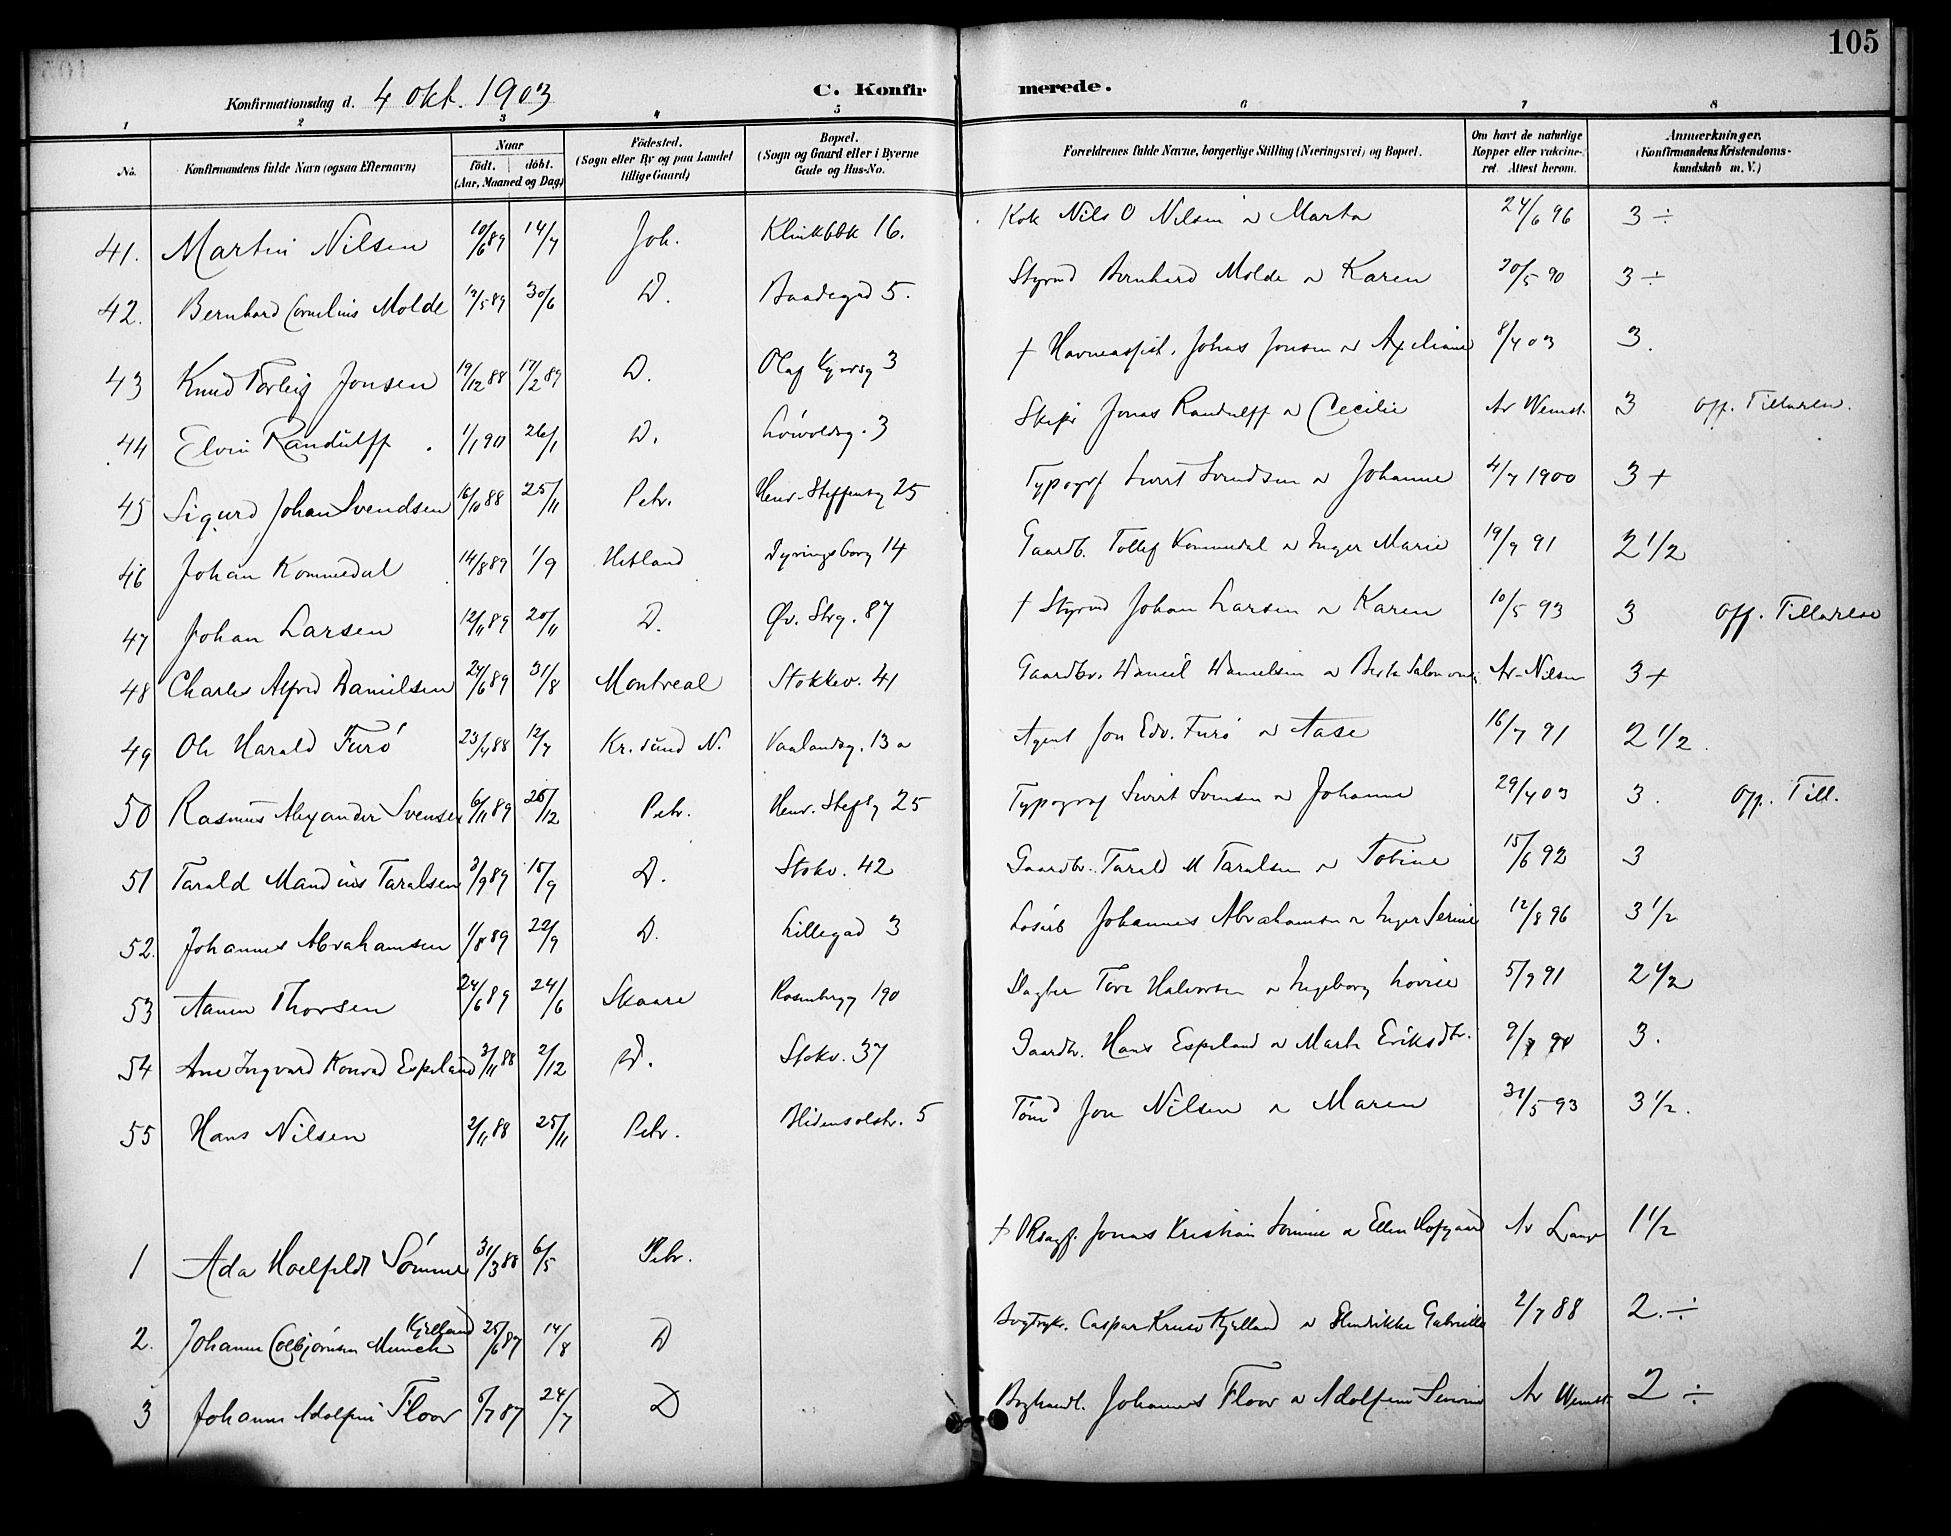 105
Konfirmationsdag d. 4 Okt. 1903
C. Konfirmerede.
1 2 3 4 5 6 7 8
No.
Konfirmandens fulde Navn (ogsaa Efternavn)
Naar født. døbt. (Aar, Maaned og Dag)
Fødested. (Sogn eller By og paa Landet tillige Gaard)
Bopæl. (Sogn og Gaard eller i Byerne Gade og Hus-No.
Forældrenes fulde Navne, borgerlige Stilling (Næringsvei) og Bopæl.
Om havt de naturlige Kopper eller vakcineret. Attest herom.
Anmærkninger. (Konfirmandens Kristendomskundskab m. V.)
41. Martin Nilsen 10/6 89 14/7 Joh. Klinkbbk 16. Kok Nils O Nilsen & Marta 24/6 96 3 ÷
42. Bernhard Cornelius Molde 12/5 89 30/6 D. Baadegad 5. Styrmd Bernhard Molde & Karen 30/5 90 3 ÷
43 Knud Torleif Jonsen 19/12 88 17/2 89 D. Olaf Kyrresg 3 † Havneassist. Johas Jonsen & Axeliane 8/4 03 3.
44 Elvin Randulff 1/1 90 26/1 D. Løvoldsg. 3 Skipr Jonas Randulff & Cecilie Av Wemst. 3 Off. Tilladelse.
45 Sigurd Johan Svendsen 16/10 88 25/11 Petr. Henr. Steffensg 25 Typogrf Sivert Svendsen & Johanne 4/7 1900 3 +
46 Johan Kommedal 14/8 89 1/9 Hetland Dyringsborg 14 Gaardb. Tollef Kommedal & Inger Marie 19/9 91 2 1/2
47 Johan Larsen 12/11 89 20/11 D. Øv. Strg. 87 † Styrmd Johan Larsen & Karen 10/5 93 3 Off. Tilladelse
48 Charles Alfred Danielsen 24/6 89 31/8 Montreal Stokkev. 41 Gaardbr. Daniel Danielsen & Berta Salomons. Av. Nilsen 3 +
49 Ole Harald Furø 23/4 88 12/7 Kr.sund N. Vaalandsg. 13 a Agent Jon Edv. Furø & Aase 16/7 91 2 1/2.
50 Rasmus Alexander Svensen 6/11 89 26/12 Petr. Henr. Stefsg 25 Typograf Sivert Svensen & Johanne 29/4 03 3. Off. Till.
51 Tarald Mandius Taralsen 3/9 89 15/9 D. Stokv. 42 Gaardbr. Tarald M Taralsen & Tobine 15/6 92 3
52. Johannes Abrahamsen 1/8 89 22/9 D. Lillegad 3 Løsarb Johannes Abrahamsen & Inger Serine 12/8 96 3 1/2
53 Aanen Thorsen 24/6 89 24/6 Skaare Rosenbergg 190 Dagbr Tore Halvorsen & Ingeborg Lovise 5/9 91 2 1/2
54 Arne Ingvard Konrad Espeland 3/11 88 2/12 D. Stokv. 37 Gaardbr. Hans Espeland & Marta Eriksdtr. 3.
55 Hans Nilsen 2/11 88 25/11 Petr. Hidensolstr. 5 Tømd Jon Nilsen & Maren 31/5 93 3 1/2.
1 Ada Hoelfeldt Sømme 31/3 88 6/5 Petr. † Jonas Kristian Sømme & Ellen Hofgaard Av Lange 1 1/2
2. Johanne Colbjørnsen Munch Kjelland 25/6 87 14/8 D Bogtrykr. Caspar Kruse Kjelland & Henrikke Gabrielle 2/7 88 2. ÷
3 Johanne Adolfine Floor 6/7 87 24/7 D Boghandl. Johannes Floor & Adolfine Severine Av Wemst. 2 ÷